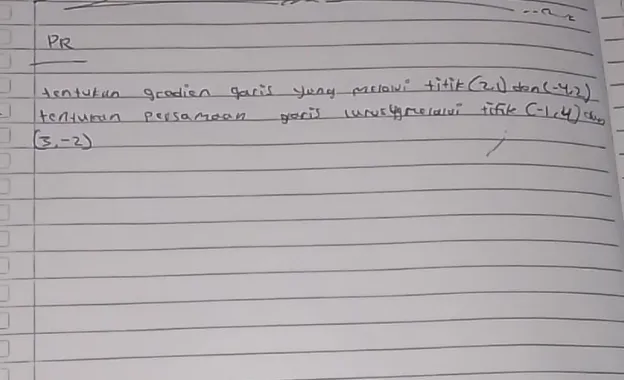 PR
tentukan gradien garis yang melalui titik (2,1) dan (-4,2)
tentukan persamaan garis lurus yg melalui titik (-1,4) dan
(3,-2)